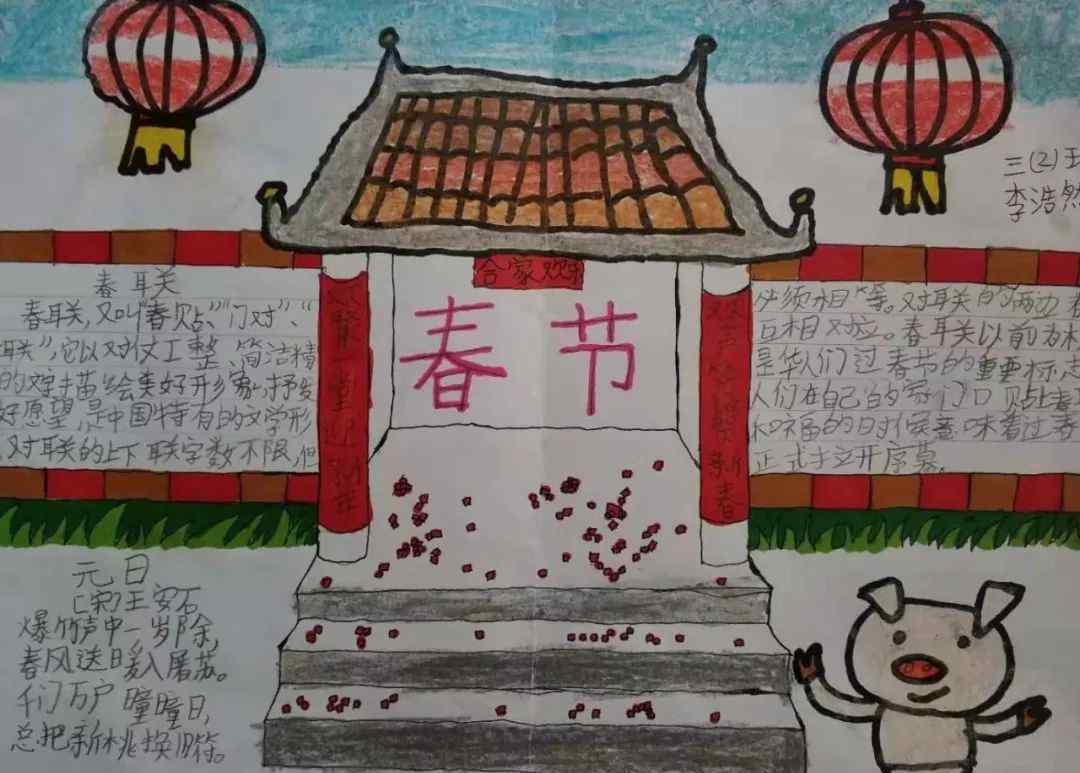 三(2)班
李浩然
合家欢乐
春节
欢聚一堂迎新年
声笑 新春
春联
春联,又叫"春贴""门对"、"
联",它以对仗工整、简洁精
的文字描绘美好形象,抒发
好愿望,是中国特有的文学形
对联的上下联字数不限,但
必须相等。对联的两边
互相对应。春联以前为
是华人们过春节的重要标志
人们在自己的家门口贴春
和福的时候意味着过春
正式拉开序幕。
元日
[宋]王安石
爆竹声中一岁除,
春风送暖入屠苏。
千门万户瞳瞳日,
总把新桃换旧符。